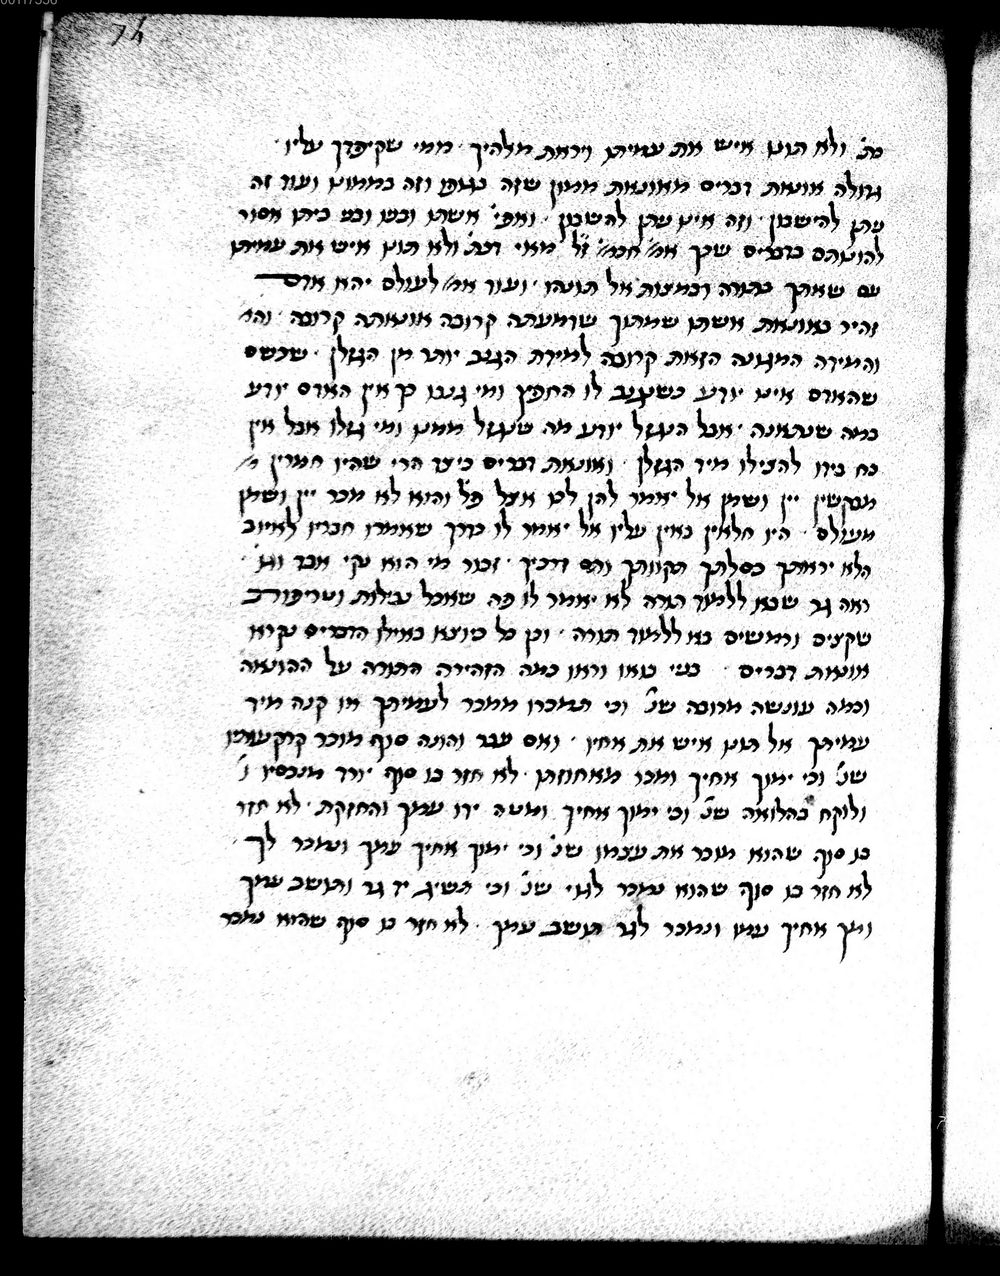 כת' ולא תונו איש את עמיתו ויראת מאלהיך · ממי שקיפדך עליו ·
גדולה אונאת דברים מאונאת ממון שזה בגופו וזה בממונו ועוד זה
נתן להישבון · וזה אינו נתן להשבון · ואפי' אשתו ובניו ובני ביתו אסור
להונותם בדברים שכך אמ' חכמ' ז"ל מאי דכת' ולא תונו איש את עמיתו
עם שאתך בתורה ובמצות אל תונהו · ועוד אמ' לעולם יהא אדם
זהיר באונאת אשתו שמתוך שדמעתה קרובה אונאתה קרובה · והנ'
והמידה המגונה הזאת קרובה למידת הגנב יותר מן הגזלן · שכשם
שהאדם אינו יודע כשגנב לו החפץ ומי גנבו כך אין האדם יודע
כמה שנתאנה · אבל הנגזל יודע מה שנגזל ממנו ומי גזלו אבל אין
כח בידו להצילו מיד הגזלן · ואונאת דברים כיצד הרי שהיו חמרין
מבקשין יין ושמן אל יאמר להן לכו אצל פל' והוא לא מכר יין ושמן
מעולם · היו חלאין באין עליו אל יאמר לו כדרך שאמרו חבריו לאיוב
הלא יראתך כסלתך תקוותך ותם דרכיך · זכור מי הוא נקי אבד וגו'
ראה גר שבא ללמוד תורה לא יאמר לו פה שאוכל נבילות וטריפות
שקצים ורמשים בא ללמוד תורה · וכן כל כיוצא באילו הדברים נקרא
אונאת דברים · בני בואו וראו כמה הזהירה התורה על ההונאה
וכמה עונשה מרובה שנ' וכי תמכרו ממכר לעמיתך או קנה מיד
עמיתך אל תונו איש את אחיו · ואם עבר והונה סוף מוכר קרקעותיו
שנ' וכי ימוך אחיך ומכר מאחוזתו · לא חזר בו סוף יורד מנכסיו
ולוקח בהלואה שנ' וכי ימוך אחיך ומטה ידו עמך והחזקת · לא חזר
בו סוף שהוא מוכר את עצמו שנ' וכי ימוך אחיך עמך ונמכר לך ·
לא חזר בו סוף שהוא נמכר לגוי שנ' וכי תשיג יד גר ותושב עמך
ומך אחיך עמו ונמכר לגר תושב עמך · לא חזר בו סוף שהוא נמכר